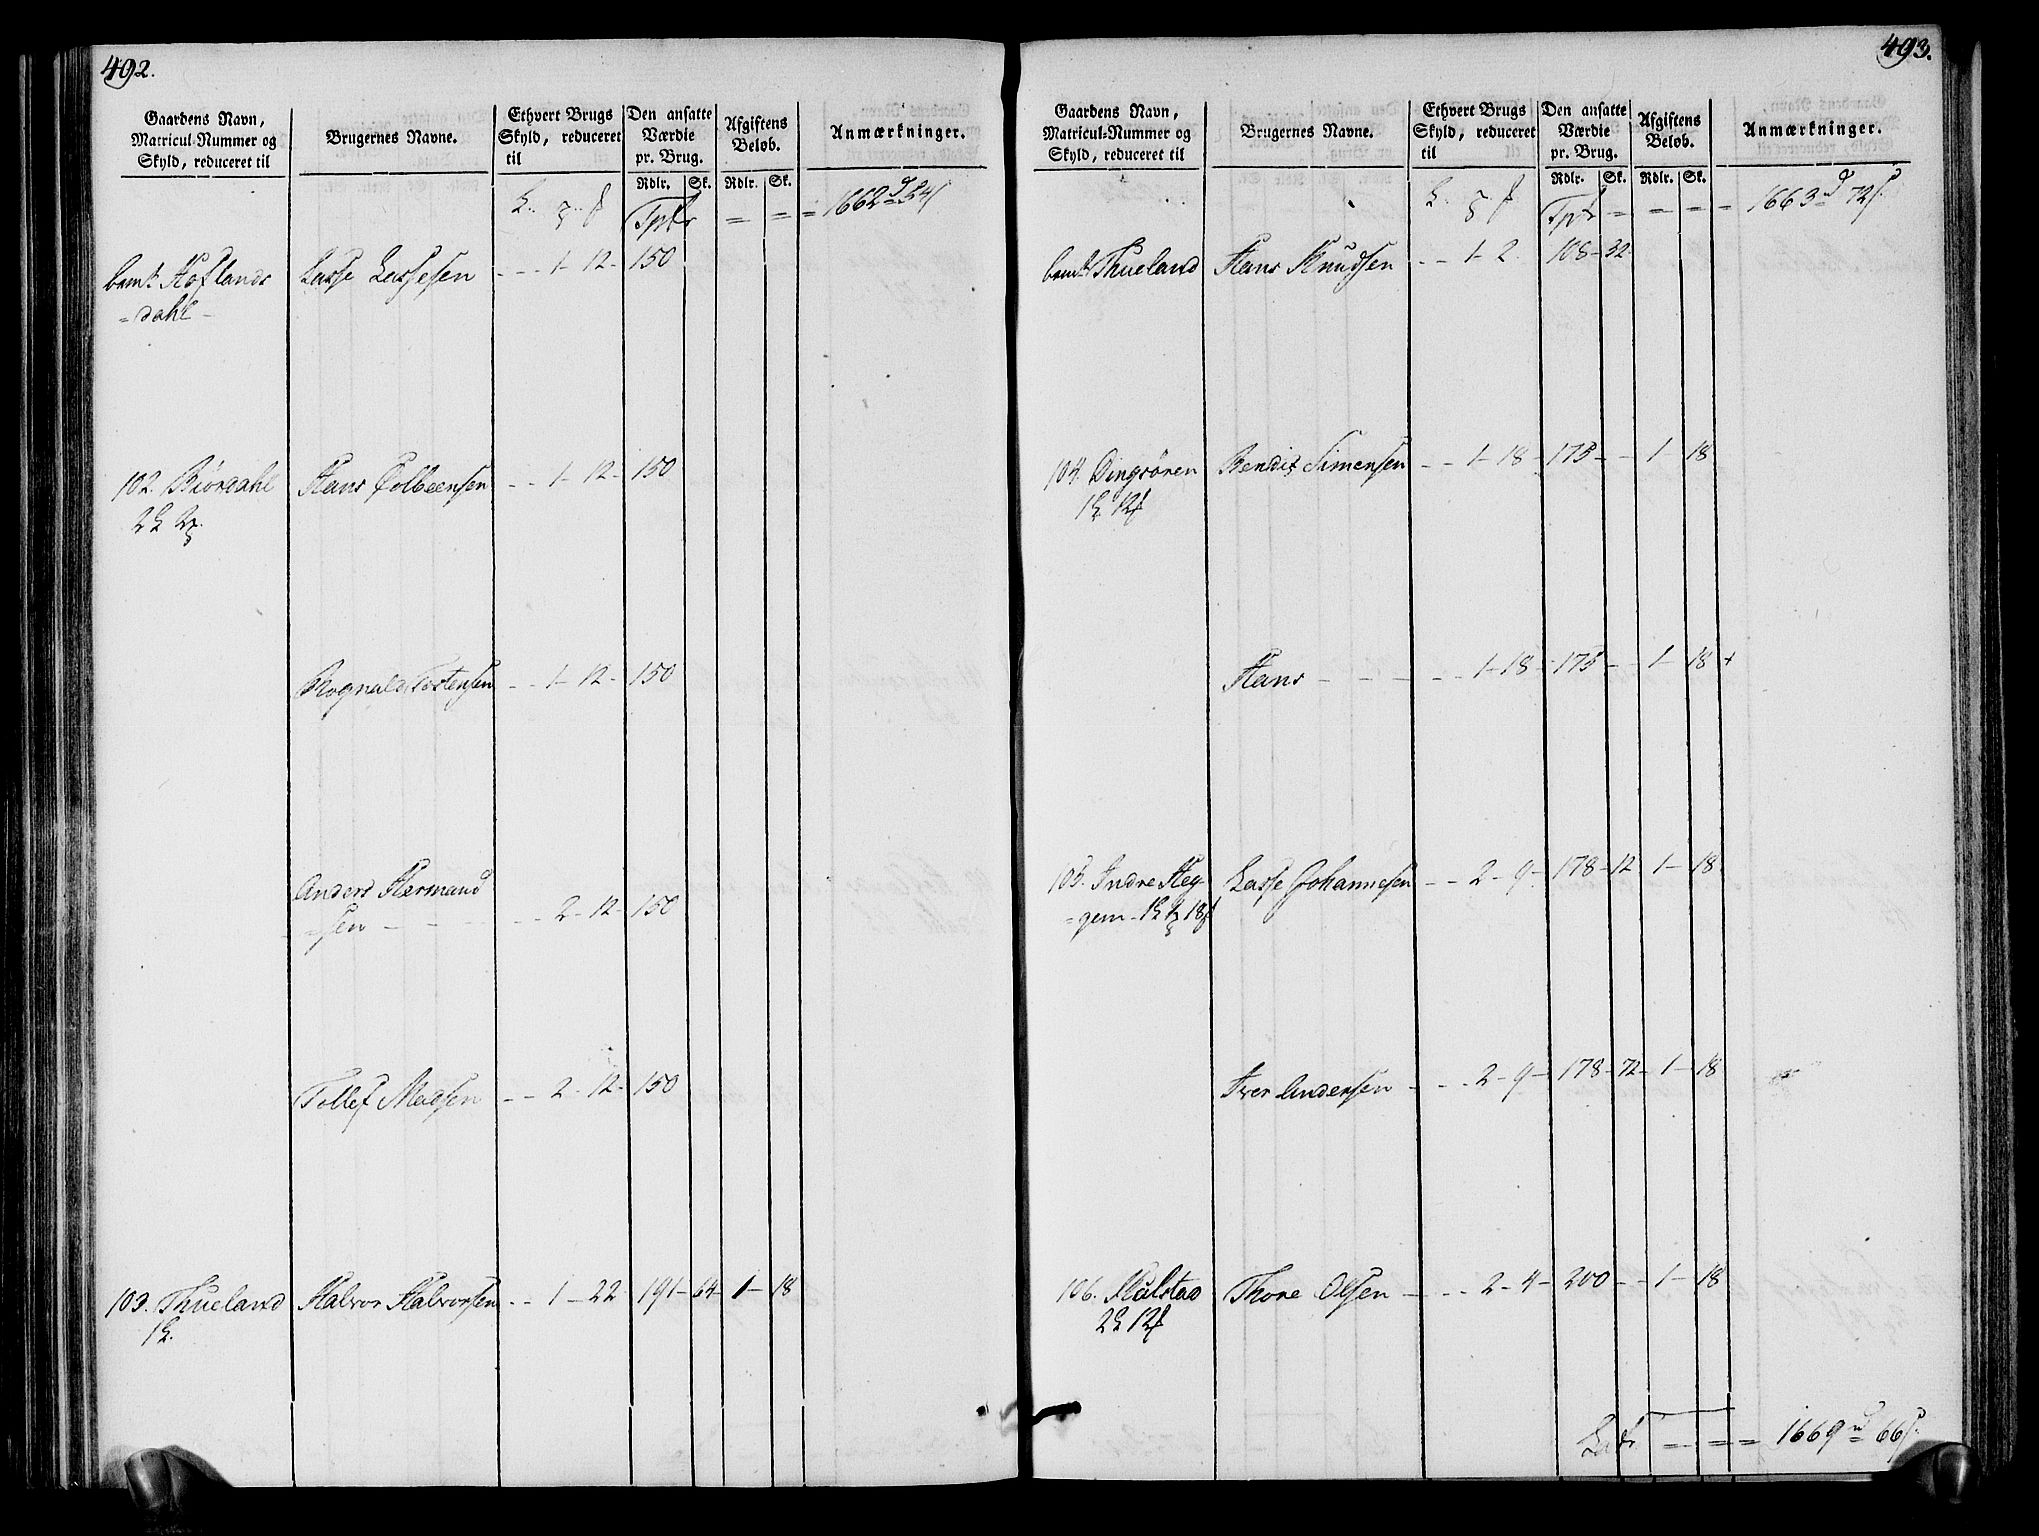 492.
Gaardens Navn,
Matricul-Nummer og
Skyld, reduceret til
Brugernes Navne.
Ethvert Brugs
Skyld, reduceret
til
Den ansatte
Værdie
pr. Brug.
Afgiftens
Beløb.
Anmærkninger.
Rdlr. Sk. Rdlr. Sk.
Tptr = = = 1662 d 54 s
bemt. Hoflands
=dahl -
Lasse Lassesen - - - 1 - 12 - 150
102. Biørdahl Hans Tolbeensen - - 1 - 12 - 150
Rognald Tostensen - - 1 - 12 - 150
Anders Hermand
=sen - - - - 2 - 12 - 150
Tollef Madsen - - 2 - 12 - 150
103. Thueland Halvor Halvorsen - - 1 - 22 191 - 64 - 1 - 18
493.
Gaardens Navn,
Matricul-Nummer og
Skyld, reduceret til
Brugernes Navne.
Ethvert Brugs
Skyld, reduceret
til
Den ansatte
Værdie
pr. Brug.
Afgiftens
Beløb.
Anmærkninger.
Rdlr. Sk. Rdlr. Sk.
Tptr = = = = 1663 d 72 s.
bemt. Thueland Hans Knudsen - - 1 - 2. 108 - 32
104. Dingsören Bendix Simensen - - 1 - 18 - 175 - - 1 - 18
Hans - - - - - 1 - 18 - 175 - - 1 - 18 +
105. Indre Heg- Lasse Johannesen - - 2 - 9 - 178 - 12 1 - 18
=gem -
Iver Andersen - - - 2 - 9 - 178 - 72 - 1 - 18
106. Hulstad Thore Olsen - - - 2 - 4 - 200 - - 1 - 18
Latr. = = = 1669 d 66 s.